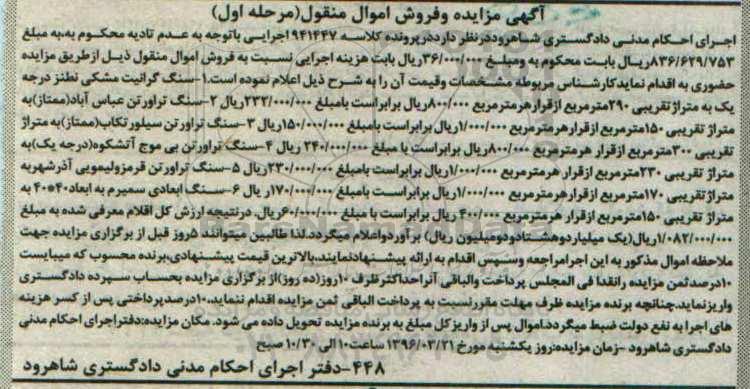 آگهی مزایده وفروش اموال منقول(مرحله اول)
اجرای احکام مدنی دادگستری شاهروددرنظر دارددرپرونده کلاسه ۹۴۱۴۴۷ اجرایی باتوجه به عدم تادیه محکوم به،به مبلغ
۸۳۶/۶۲۹/۷۵۳ریال بابت محکوم به ومبلغ ۳۶/۰۰۰/۰۰۰ریال بابت هزینه اجرایی نسبت به فروش اموال منقول ذیل ازطریق مزایده
حضوری به اقدام نمایدکارشناس مربوطه مشخصات وقیمت آن را به شرح ذیل اعلام نموده است.۱-سنگ گرانیت مشکی نطنز درجه
یک به متراژ تقریبی ۲۹۰مترمربع ازقرارهرمترمربع ۸۰۰/۰۰۰ریال برابراست بامبلغ ۲۳۲/۰۰۰/۰۰۰ریال ۲-سنگ تراورتن عباس آباد(ممتاز)به
متراژ تقریبی ۱۵۰مترمربع ازقرارهرمترمربع ۱/۰۰۰/۰۰۰ریال برابراست بامبلغ ۱۵۰/۰۰۰/۰۰۰ریال ۳-سنگ تراورتن سیلورتکاب(ممتاز)به متراژ
تقریبی ۳۰۰مترمربع ازقرار هرمترمربع ۸۰۰/۰۰۰ریال برابراست با مبلغ ۲۴۰/۰۰۰/۰۰۰ ریال ۴-سنگ تراورتن بی موج آتشکوه(درجه یک)به
متراژ تقریبی ۲۳۰مترمربع ازقرار هرمترمربع ۱/۰۰۰/۰۰۰ریال برابراست بامبلغ ۲۳۰/۰۰۰/۰۰۰ریال ۵-سنگ تراورتن قرمزولیمویی آذرشهربه
متراژ تقریبی ۱۷۰مترمربع ازقرارهرمترمربع ۱/۰۰۰/۰۰۰ریال برابراست بامبلغ ۱۷۰/۰۰۰/۰۰۰ریال ۶-سنگ ابعادی سمیرم به ابعاد۴۰*۴۰ به
متراژ تقریبی ۱۵۰مترمربع ازقرار هرمترمربع ۴۰۰/۰۰۰ ریال برابراست با مبلغ ۶۰/۰۰۰/۰۰۰ریال، درنتیجه ارزش کل اقلام معرفی شده به مبلغ
۱/۰۸۲/۰۰۰/۰۰۰ریال(یک میلیاردوهشتادودومیلیون ریال) برآوردواعلام میگردد.لذا طالبین میتوانند ۵روز قبل از برگزاری مزایده جهت
ملاحظه اموال مذکور به این اجرامراجعه وسپس اقدام به ارائه پیشنهادنمایند،بالاترین قیمت پیشنهادی،برنده محسوب که میبایست
۱۰درصدثمن مزایده رانقدا فی المجلس پرداخت والباقی آنراحداکثرظرف ۱۰روز(ده روز)از برگزاری مزایده بحساب سپرده دادگستری
واریزنماید.چنانچه برنده مزایده ظرف مهلت مقررنسبت به پرداخت الباقی ثمن مزایده اقدام ننماید،۱۰درصدپرداختی پس از کسر هزینه
های اجرا به نفع دولت ضبط میگردد،اموال پس از واریزکل مبلغ به برنده مزایده تحویل داده می شود. مکان مزایده:دفتراجرای احکام مدنی
دادگستری شاهرود -زمان مزایده:روز یکشنبه مورخ ۱۳۹۶/۰۳/۲۱ ساعت۱۰ الی ۱۰/۳۰ صبح
۴۴۸-دفتر اجرای احکام مدنی دادگستری شاهرود